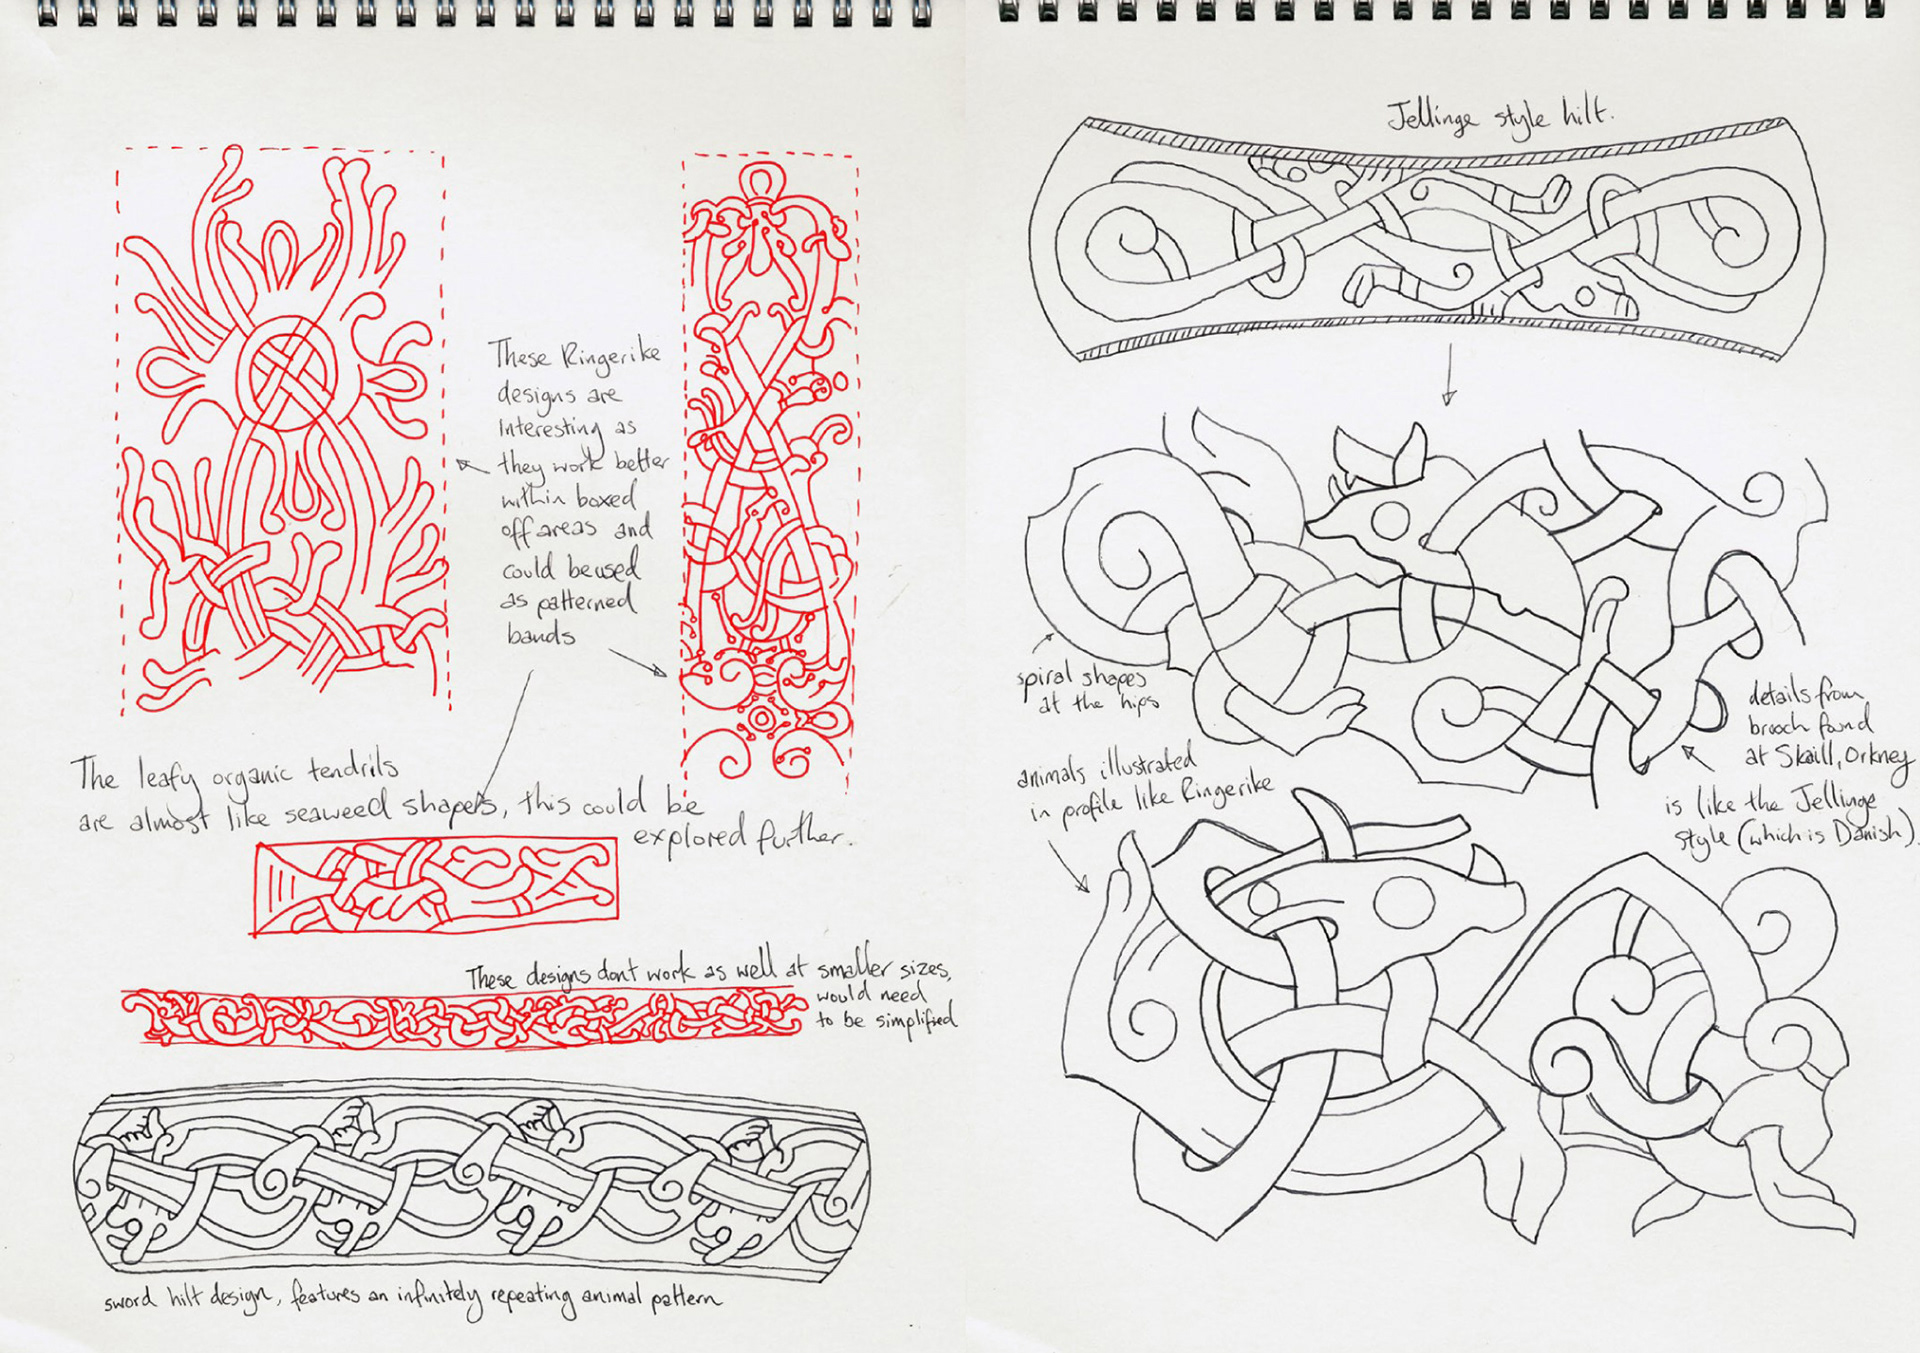 These Ringerike
designs are
interesting as
they work better
within boxed
off areas and
could be used
as patterned
bands
The leafy organic tendrils
are almost like seaweed shapes, this could be
explored further.
These designs dont work as well at smaller sizes,
would need
to be simplified
sword hilt design, features an infinitely repeating animal pattern
Jellinge style hilt.
spiral shapes
at the hips
details from
brooch found
at Skaill, Orkney
is like the Jellinge
style (which is Danish).
animals illustrated
in profile like Ringerike